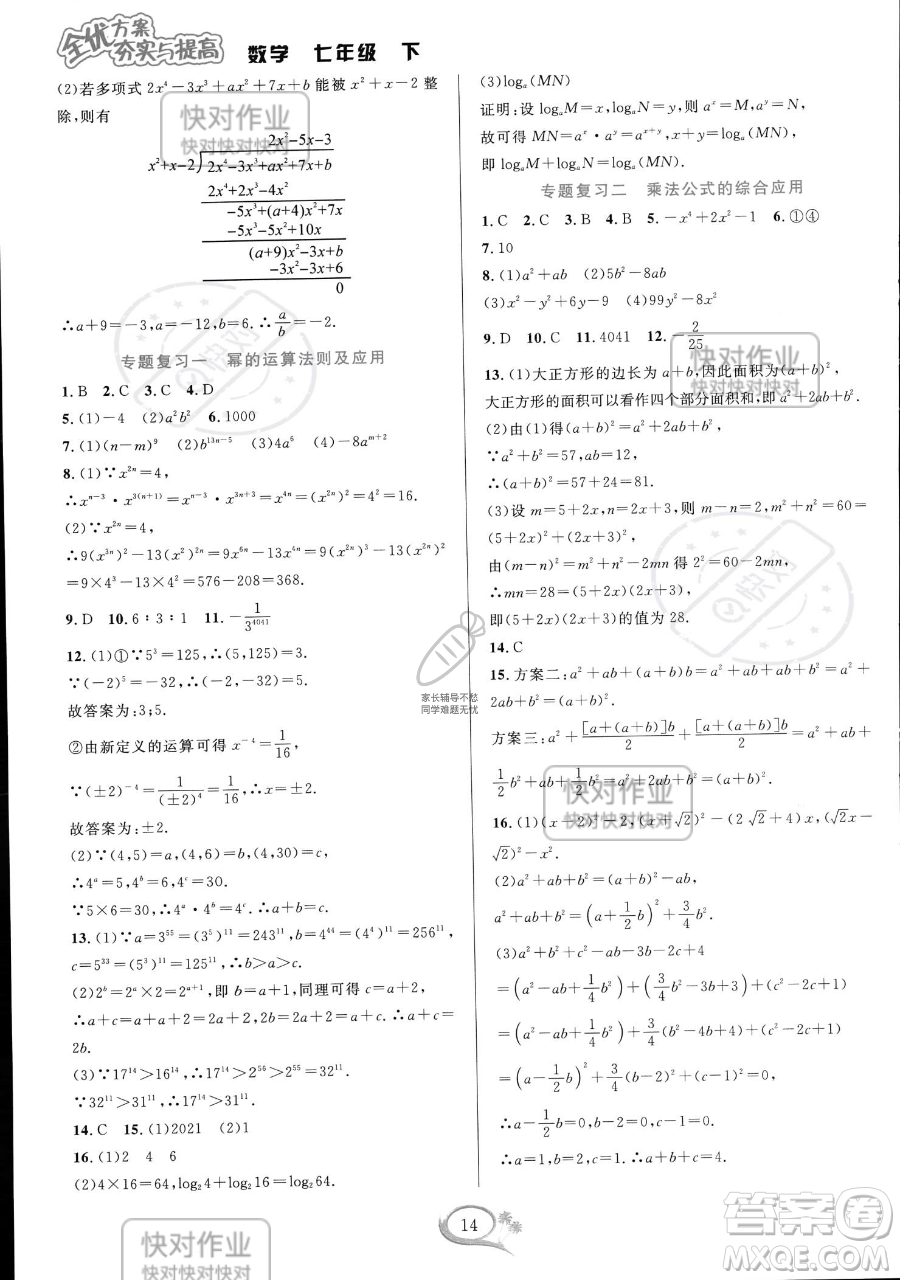 全优方案
夯实与提高 数学 七年级 下
(2)若多项式 2x⁴－3x³＋ax²＋7x＋b 能被 x²＋x－2 整
除,则有
2x²－5x－3
x²＋x－2)2x⁴－3x³＋ax²＋7x＋b
2x⁴＋2x³－4x²
－5x³＋(a＋4)x²＋7x
－5x³－5x²＋10x
(a＋9)x²－3x＋b
－3x²－3x＋6
0
∴a＋9＝－3,a＝－12,b＝6.∴a/b＝－2.
专题复习一 幂的运算法则及应用
1.B 2.C 3.C 4.D
5.(1)－4 (2)a²b² 6.1000
7.(1)(n－m)⁹ (2)b¹³ⁿ⁻⁵ (3)4a⁶ (4)－8aᵐ⁺²
8.(1)∵x²ⁿ＝4,
∴xⁿ⁻³·x³⁽ⁿ⁺¹⁾＝xⁿ⁻³·x³ⁿ⁺³＝x⁴ⁿ＝(x²ⁿ)²＝4²＝16.
(2)∵x²ⁿ＝4,
∴9(x³ⁿ)²－13(x²)²ⁿ＝9x⁶ⁿ－13x⁴ⁿ＝9(x²ⁿ)³－13(x²ⁿ)²
＝9×4³－13×4²＝576－208＝368.
9.D 10.6∶3∶1 11.－1/3⁴⁰⁴¹
12.(1)①∵5³＝125,∴(5,125)＝3.
∵(－2)⁵＝－32,∴(－2,－32)＝5.
故答案为:3;5.
②由新定义的运算可得 x⁻⁴＝1/16,
∵(±2)⁻⁴＝1/(±2)⁴＝1/16,∴x＝±2.
故答案为:±2.
(2)∵(4,5)＝a,(4,6)＝b,(4,30)＝c,
∴4ᵃ＝5,4ᵇ＝6,4ᶜ＝30.
∵5×6＝30,∴4ᵃ·4ᵇ＝4ᶜ.∴a＋b＝c.
13.(1)∵a＝3⁵⁵＝(3⁵)¹¹＝243¹¹,b＝4⁴⁴＝(4⁴)¹¹＝256¹¹,
c＝5³³＝(5³)¹¹＝125¹¹,∴b＞a＞c.
(2)2ᵇ＝2ᵃ×2＝2ᵃ⁺¹,即 b＝a＋1,同理可得 c＝a＋2,
∴a＋c＝a＋a＋2＝2a＋2＝2(a＋1)＝2b.∴a＋c＝
2b.
(3)∵17¹⁴＞16¹⁴,∴17¹⁴＞2⁵⁶＞2⁵⁵.
∵32¹¹＞31¹¹,∴2⁵⁵＞31¹¹.∴17¹⁴＞31¹¹.
14.C 15.(1)2021 (2)1
16.(1)2 4 6
(2)4×16＝64,log₂4＋log₂16＝log₂64.
(3)logₐ(MN)
证明:设 logₐM＝x,logₐN＝y,则 aˣ＝M,aʸ＝N,
故可得 MN＝aˣ·aʸ＝aˣ⁺ʸ,x＋y＝logₐ(MN),
即 logₐM＋logₐN＝logₐ(MN).
专题复习二 乘法公式的综合应用
1.C 2.C 3.B 4.B 5.－x⁴＋2x²－1 6.①④
7.10
8.(1)a²＋ab (2)5b²－8ab
(3)x²－y²＋6y－9 (4)99y²－8x²
9.D 10.C 11.4041 12.－2/25
13.(1)大正方形的边长为 a＋b,因此面积为(a＋b)²,
大正方形的面积可以看作四个部分面积和,即 a²＋2ab＋b²
(2)由(1)得(a＋b)²＝a²＋2ab＋b²,
∵a²＋b²＝57,ab＝12,
∴(a＋b)²＝57＋24＝81.
(3)设 m＝5＋2x,n＝2x＋3,则 m－n＝2,m²＋n²＝60＝
(5＋2x)²＋(2x＋3)²,
由(m－n)²＝m²＋n²－2mn 得 2²＝60－2mn,
∴mn＝28＝(5＋2x)(2x＋3),
即(5＋2x)(2x＋3)的值为 28.
14.C
15.方案二:a²＋ab＋(a＋b)b＝a²＋ab＋ab＋b²＝a²＋
2ab＋b²＝(a＋b)².
方案三:a²＋[a＋(a＋b)]b/2＋[a＋(a＋b)]b/2＝a²＋ab＋
1/2b²＋ab＋1/2b²＝a²＋2ab＋b²＝(a＋b)².
16.(1)(x－2)²－2,(x＋√2)²－(2√2＋4)x,(√2x－
√2)²－x².
(2)a²＋ab＋b²＝(a＋b)²－ab,
a²＋ab＋b²＝(a＋1/2b)²＋3/4b².
(3)a²＋b²＋c²－ab－3b－2c＋4
＝(a²－ab＋1/4b²)＋(3/4b²－3b＋3)＋(c²－2c＋1)
＝(a²－ab＋1/4b²)＋3/4(b²－4b＋4)＋(c²－2c＋1)
＝(a－1/2b)²＋3/4(b－2)²＋(c－1)²＝0,
∴a－1/2b＝0,b－2＝0,c－1＝0,
∴a＝1,b＝2,c＝1,∴a＋b＋c＝4.
14
快对作业
快对快对快对
快对作业
快对快对快对
快对作业
快对快对快对
快对作业
快对快对快对
快对作业
快对快对快对
快对
家长辅导不愁
同学难题无忧
答案圈
MXQE.COM